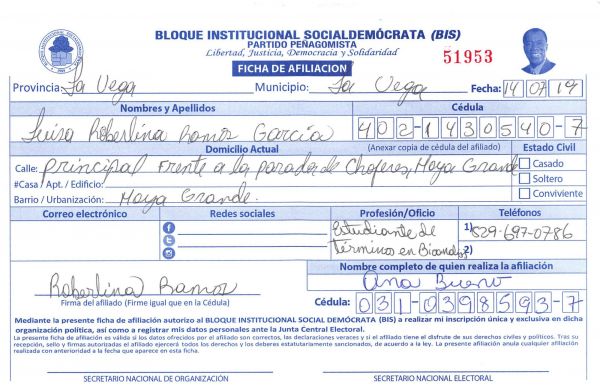 BLOQUE INSTITUCIONAL SOCIALDEMÓCRATA (BIS)
PARTIDO PEÑAGOMISTA
Libertad, Justicia, Democracia y Solidaridad
51953
FICHA DE AFILIACION
Provincia: La Vega Municipio: La Vega Fecha: 14 07 19
Nombres y Apellidos Cédula
Luisa Roberlina Ramos García 402-1430540-7
Domicilio Actual (Anexar copia de cédula del afiliado) Estado Civil
Calle: principal Frente a la parada de Choferes, Hoya Grande Casado
#Casa / Apt. / Edificio: Soltero
Barrio / Urbanización: Hoya Grande. Conviviente
Correo electrónico Redes sociales Profesión/Oficio Teléfonos
Estudiante de 1) 829-697-0786
términos en 2)
Nombre completo de quien realiza la afiliación
Roberlina Ramos Ana Bueno
Firma del afiliado (Firme igual que en la Cédula) Cédula: 031-0398593-7
Mediante la presente ficha de afiliación autorizo al BLOQUE INSTITUCIONAL SOCIAL DEMÓCRATA (BIS) a realizar mi inscripción única y exclusiva en dicha
organización política, así como a registrar mis datos personales ante la Junta Central Electoral.
La presente ficha de afiliación es válida si los datos ofrecidos por el afiliado son correctos, las declaraciones veraces y si el afiliado tiene el disfrute de sus derechos civiles y políticos. Tras su
recepción, sello y firmas autorizadas el afiliado ejercerá todos los derechos y los deberes estatutariamente sancionados, de acuerdo a la ley. La presente afiliación anula cualquier afiliación
realizada con anterioridad a la fecha que aparece en esta ficha.
SECRETARIO NACIONAL DE ORGANIZACIÓN SECRETARIO NACIONAL ELECTORAL